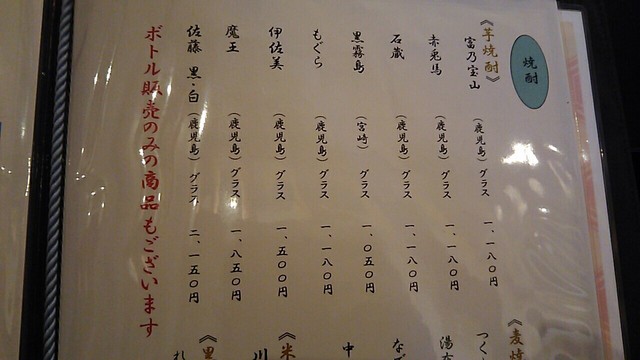 焼酎
《芋焼酎》
富乃宝山 (鹿児島) グラス 一、一八〇円
赤兎馬 (鹿児島) グラス 一、一八〇円
石蔵 (鹿児島) グラス 一、一八〇円
黒霧島 (宮崎) グラス 一、〇五〇円
もぐら (鹿児島) グラス 一、一八〇円
伊佐美 (鹿児島) グラス 一、五〇〇円
魔王 (鹿児島) グラス 一、八五〇円
佐藤 黒・白 (鹿児島) グラス 二、一五〇円
ボトル販売のみの商品もございます
《麦焼
つく
中
《米
川
《黒
れ